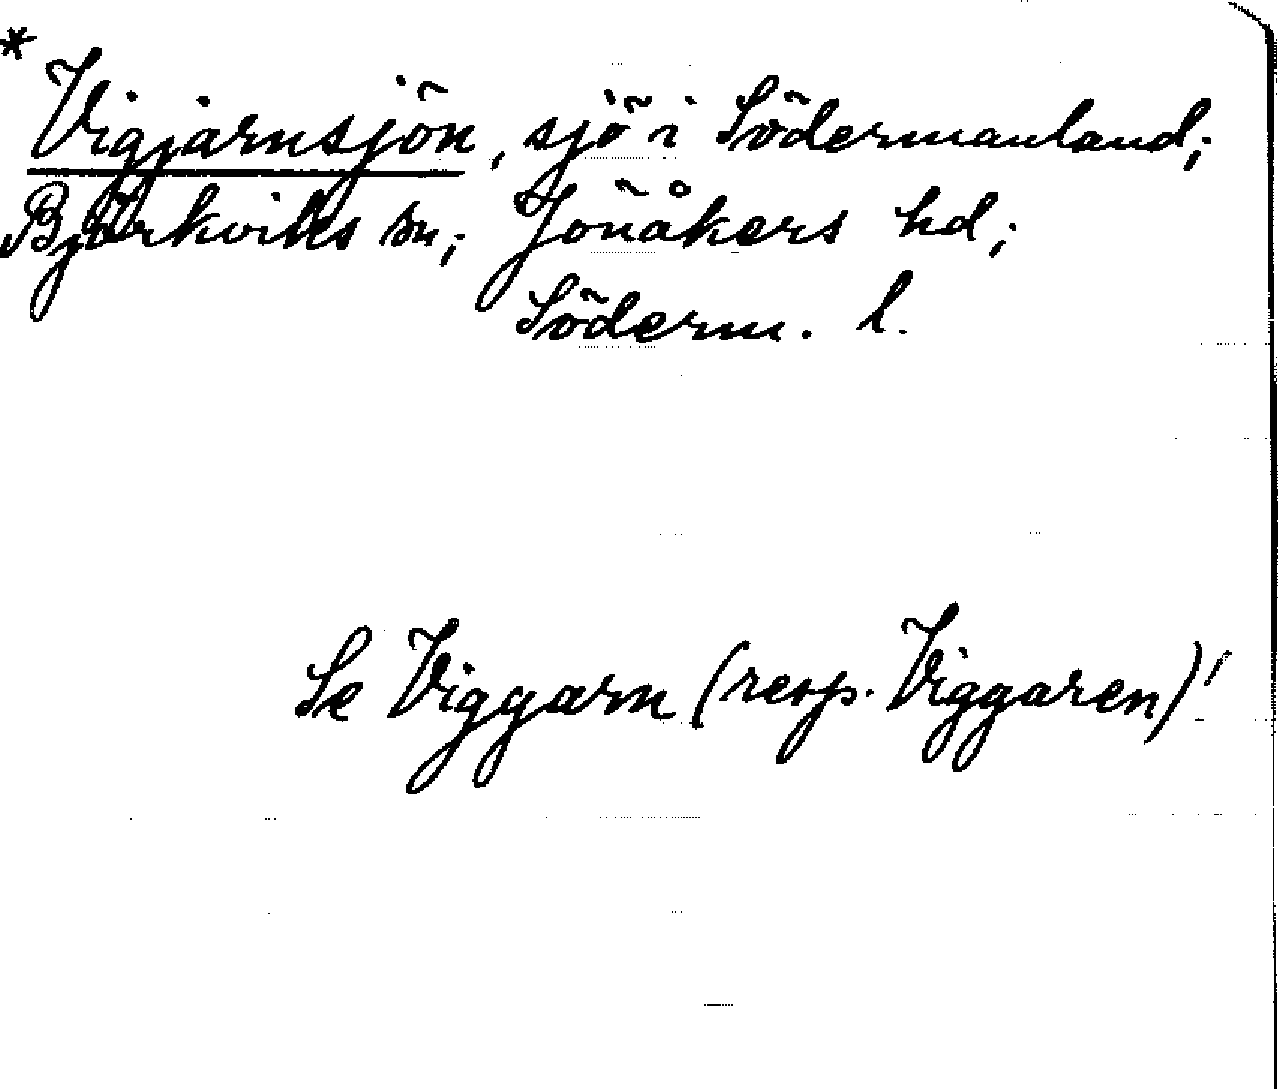 * Vigjärnsjön, sjö i Södermanland;
Björkviks sn; Jönåkers hd;
Söderm. l.
Se Viggarn (resp. Viggaren)!